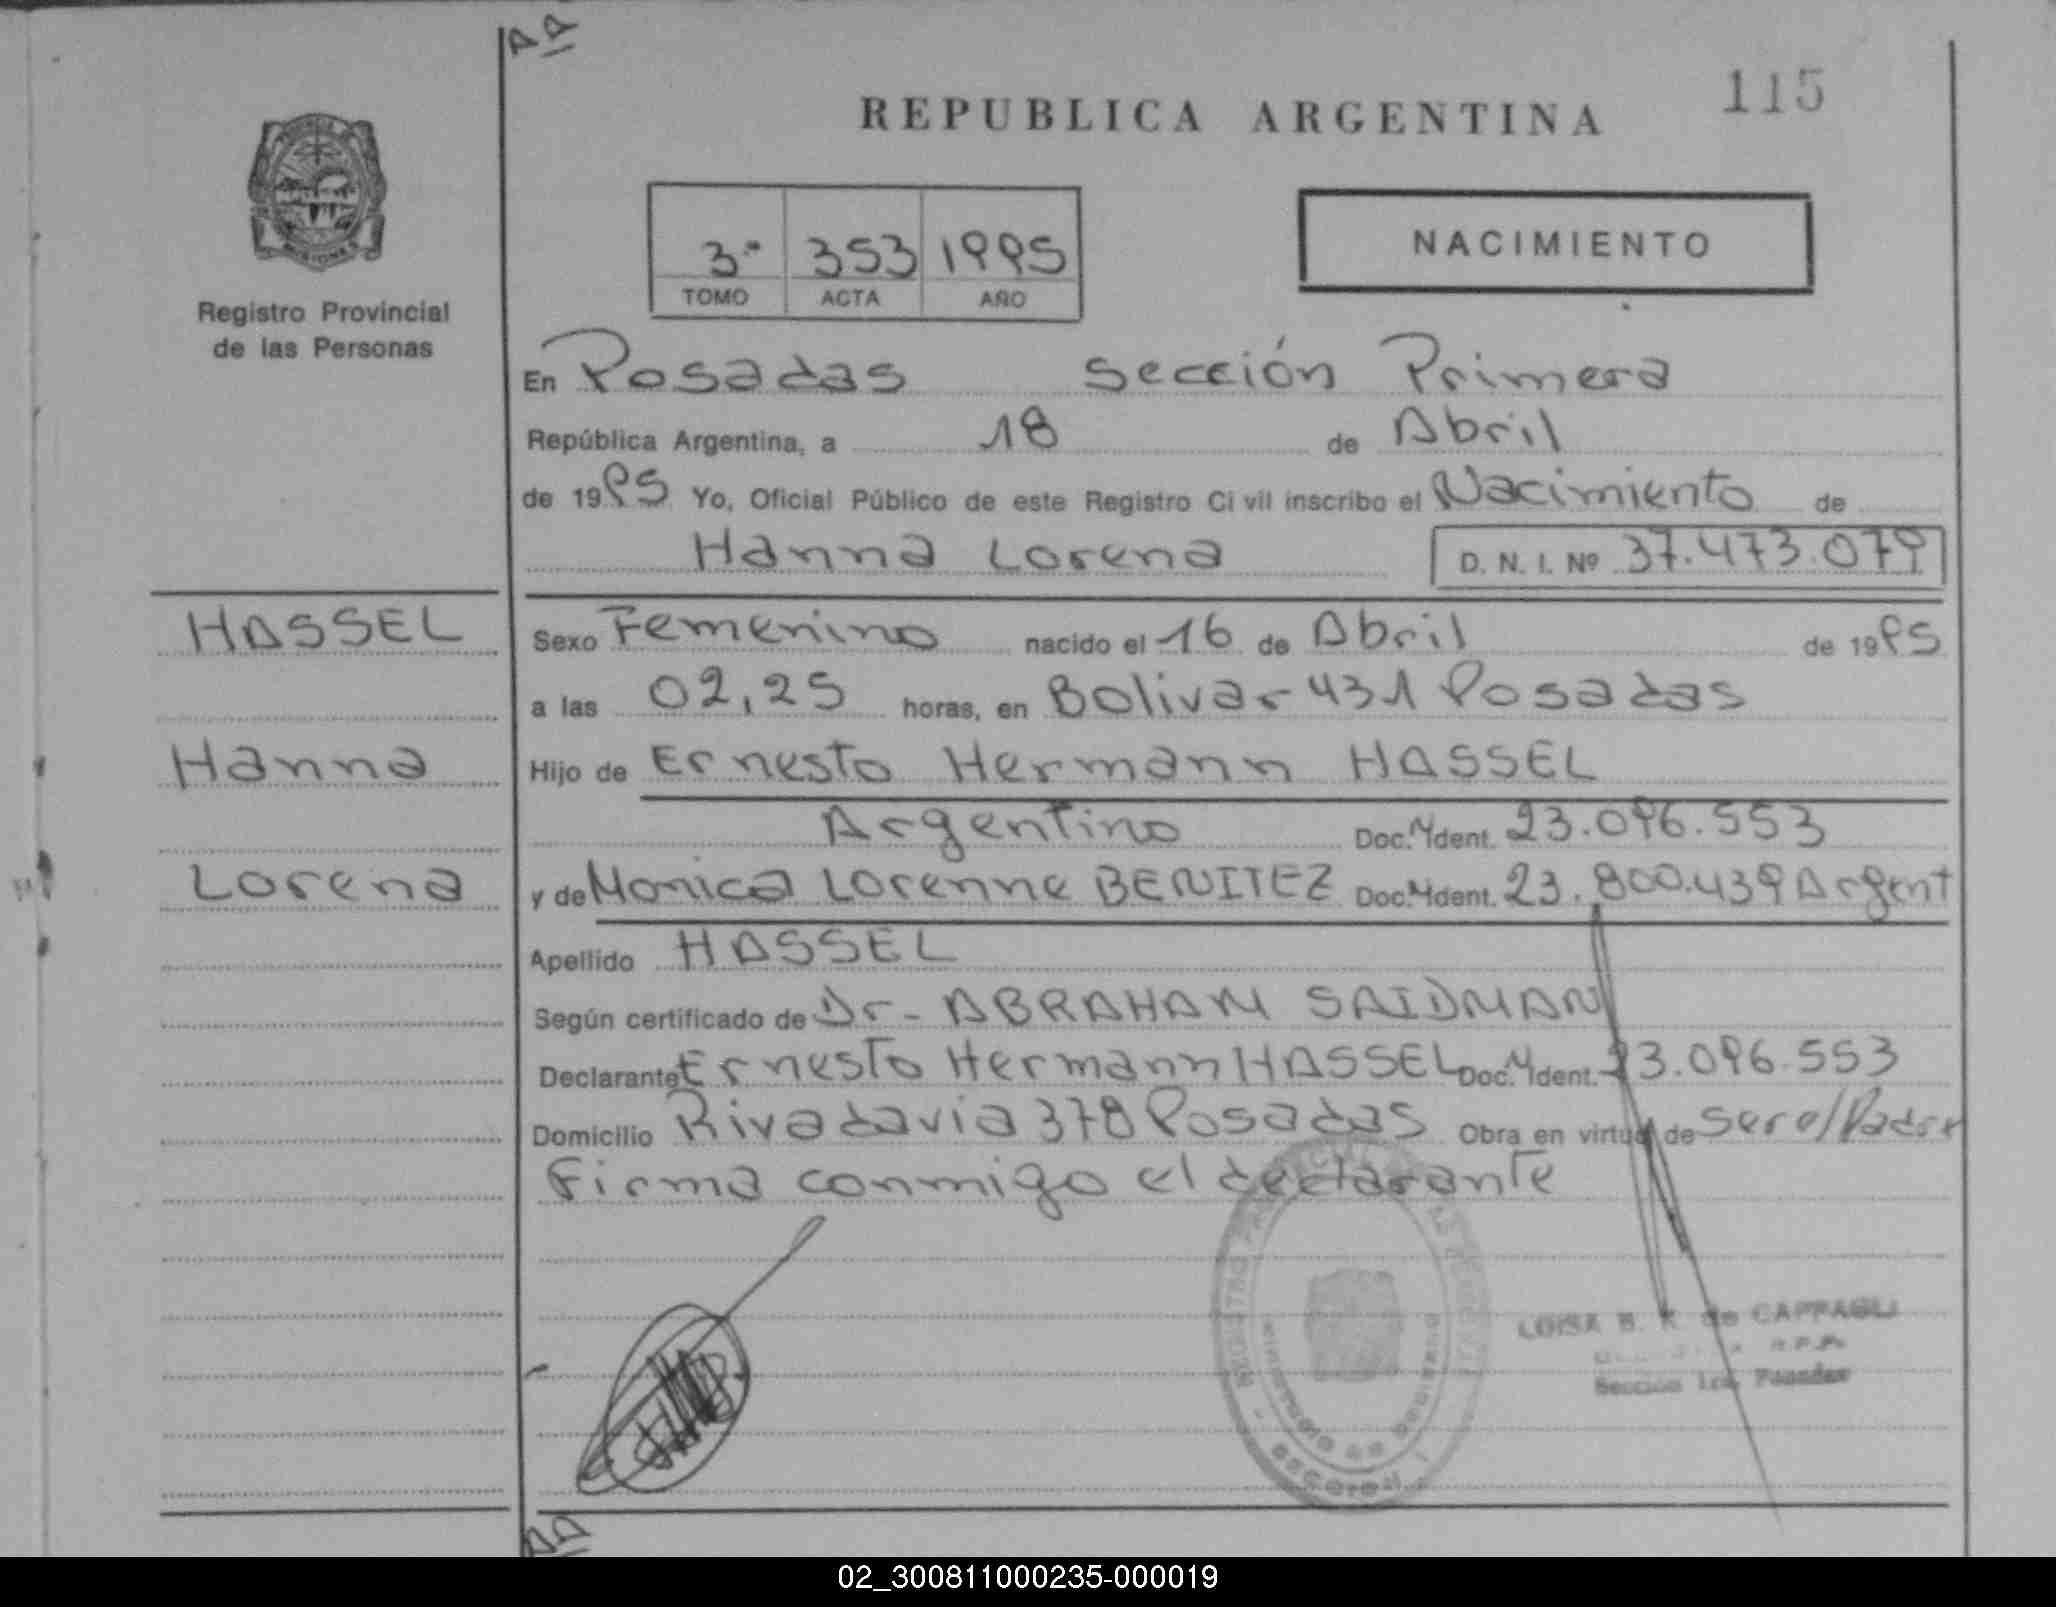 115
REPUBLICA ARGENTINA
3º 353 1995
TOMO ACTA AÑO
NACIMIENTO
Registro Provincial
de las Personas
En Posadas Sección Primera
República Argentina, a 18 de Abril
de 1995 Yo, Oficial Público de este Registro Civil inscribo el Nacimiento de
Hanna Lorena D. N. I. Nº 37.473.079
HASSEL
Sexo Femenino nacido el 16 de Abril de 1995
a las 02,25 horas, en Bolivar 431 Posadas
Hanna
Hijo de Ernesto Hermann HASSEL
Argentino Doc. Ident. 23.096.553
Lorena
y de Monica Lorenne BENITEZ Doc. Ident. 23.800.439 Argent
Apellido HASSEL
Según certificado de Dr - ABRAHAM SAIDMAN
Declarante Ernesto Hermann HASSEL Doc. Ident. 23.096.553
Domicilio Rivadavia 378 Posadas Obra en virtud de ser el Padre
Firma conmigo el declarante
LUISA B. K. de CAPPAGLI
Sección 1ra. Posadas
02_300811000235-000019